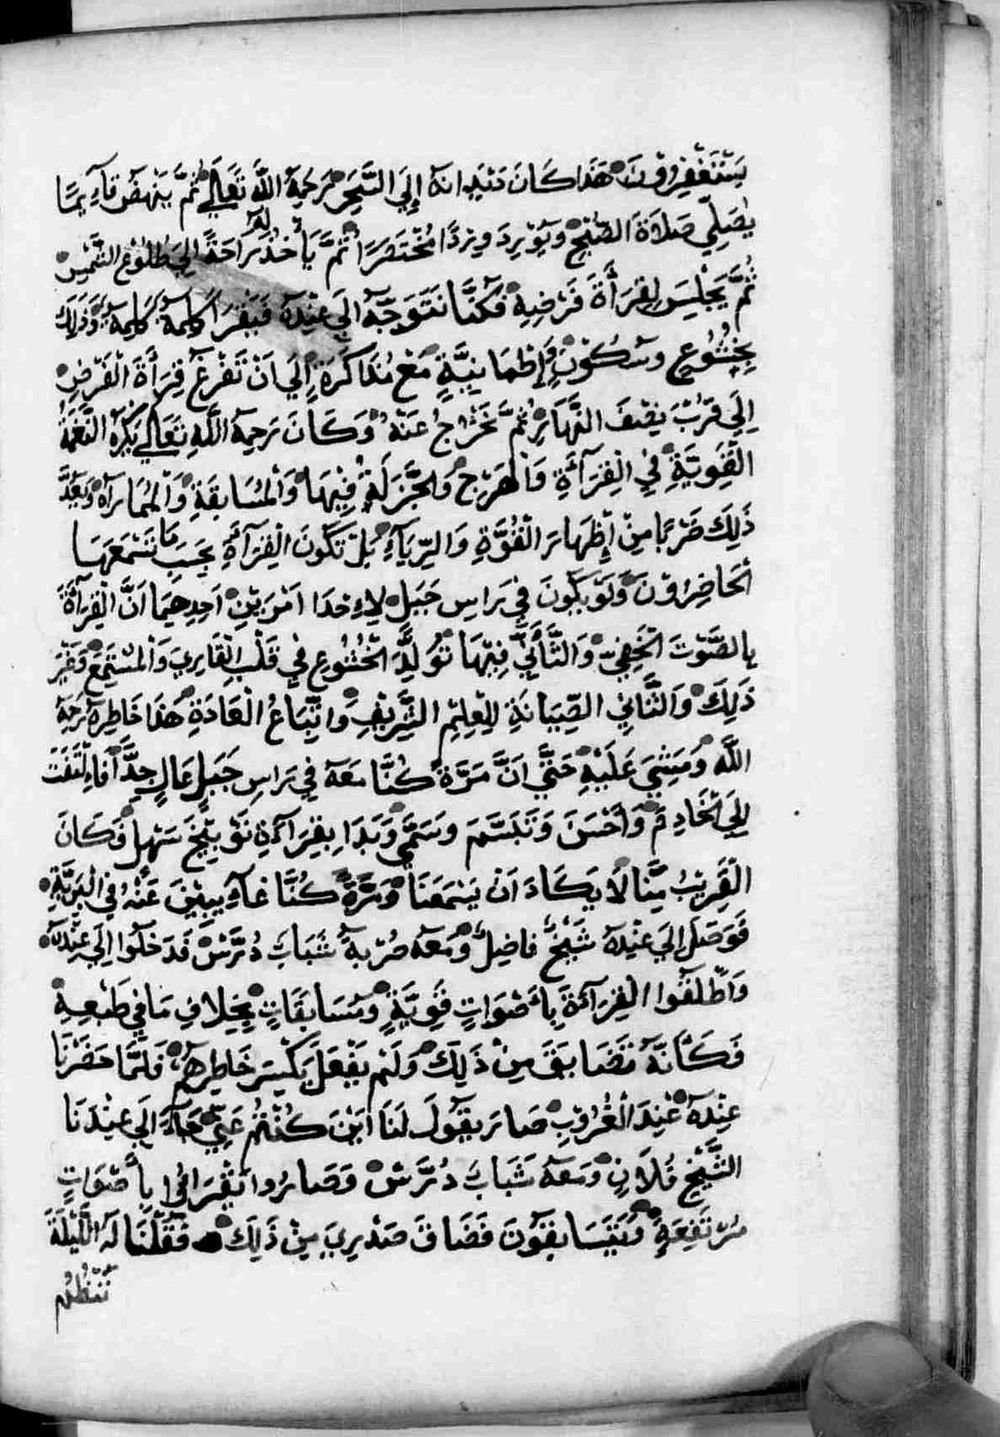 يَسْتَغْفِرُوْنَ هَذَا كَانَ دَيْدَانَهُ إِلَى السَّحَرِ رَحِمَهُ اللَّهُ تَعَالَى ثُمَّ يَنْهَضُ قَائِمًا
يُصَلِّي صَلَاةَ الصُّبْحِ وَيُوْرِدَ وِرْدًا مُخْتَصَرًا ثُمَّ يَأْخُذُ لَهُ رَاحَةً إِلَى طُلُوْعِ الشَّمْسِ
ثُمَّ يَجْلِسَ لِقِرَأَةَ فَرْضِهِ فَكُنَّا نَتَوَجَّهُ إِلَى عِنْدِهِ فَيَقْرَا كَلِمَةً كَلِمَةً وَذَلِكَ
بِخُشُوْعٍ وَسُكُوْنٍ وَإِطْمَانِيَّةٍ مَعْ مُذَاكَرَةٍ إِلَى اَنْ تَفْرَغْ قِرَأَةَ الْفَرْضِ
إِلَى قُرْبَ نِصْفَ النَّهَارِ ثُمَّ نَخْرُجُ عَنْهُ وَكَانَ رَحِمَهُ اللَّهُ تَعَالَى يَكْرَهُ النَّغَمَةَ
الْقَوِيَّةِ فِي الْقِرَآئَةِ وَالْهَرْجِ وَالْجَزْلَةِ فِيْهَا وَالْمُسَابَقَةِ وَالْمُمَارَاةِ وَيَعُدَّ
ذَلِكَ ضَرْبًا مِنْ إِظْهَارِ الْقُوَّةِ وَالرِّيَآءِ بَلْ تَكُوْنَ الْقِرَآءَةِ بِحَسَبِ مَا تَسْمَعَهَا
الْحَاضِرُوْنَ وَلَوْ يَكُوْنَ فِي رَاسِ جَبَلٍ لِاءِحْدَا اَمْرَيْنِ اَحَدِهِمَا اَنَّ الْقِرَأَةَ
بِالصَّوْتَ الْخَفِيِّ وَالتَّأَنِّي فِيْهَا تُوَلِّدُ الْخُشُوْعِ فِي قَلْبِ الْقَارِي وَالْمُسْتَمِعْ وَغَيْرَ
ذَلِكَ وَالثَّانِي الصِّيَانَةِ لِلْعِلْمِ الشَّرِيْفِ وَاتِّبَاعُ الْعَادَةِ هَذَا خَاطِرُهُ رَحِمَهُ
اللَّهُ وَمَشِيَ عَلَيْهِ حَتَّى اَنَّ مَرَّةً كُنَّا مَعَهُ فِي رَاسِ جَبَلٍ عَالٍ جِدًّا فَاِلْتَفَتَ
إِلَى الْخَادِمْ وَاَحْسَنَ وَتَبَسَّمَ وَسَمَّى وَبَدَا بِقِرَاءَةِ تَوْبِيْخَ سَهْلٍ فَكَانَ
الْقَرِيْبُ مِنَّا لَا يَكَادَ اَنْ يَسْمَعَنَا وَمَرَّةً كُنَّا غَآئِبِيْنَ عَنْهُ فِي الْبَرِيَّةِ
فَوَصَلَ إِلَى عِنْدِهِ شَيْخٌ فَاضِلٌ وَمَعَهُ صُرْبَةُ شَبَابَ دُرَّسْ فَدَخَلُوا إِلَى عِنْدِهِ
وَاَطْلَقُوا الْقِرَآئَةَ بِأَصْوَاتٍ قَوِيَّةٍ وَمُسَابَقَاتٍ بِخِلَافِ مَا فِي طَبْعِهِ
فَكَاَنَّهُ تَضَايَقَ مِنْ ذَلِكَ وَلَمْ يَفْعَلْ يَكْسِرَ خَاطِرِهِمْ فَلَمَّا حَضَرْنَا
عِنْدِهِ عِنْدَ الْغُرُوْبِ صَارَ يَقُوْلَ لَنَا اَيْنَ كُنْتُمُ عَنِّي جَآءَ إِلَى عِنْدَنَا
الشَّيْخِ فُلَانِ وَمَعَهُ شَبَابَ دُرَّسْ وَصَارُوا يَقْرَاؤُا بِأَصْوَاتٍ
مُرْتَفِعَةٍ وَيَتَسَابَقُوْنَ فَضَاقَ صَدْرِيَ مِنْ ذَلِكَ فَقُلْنَا لَهُ اللَّيْلَةَ
نَنْظُمُ